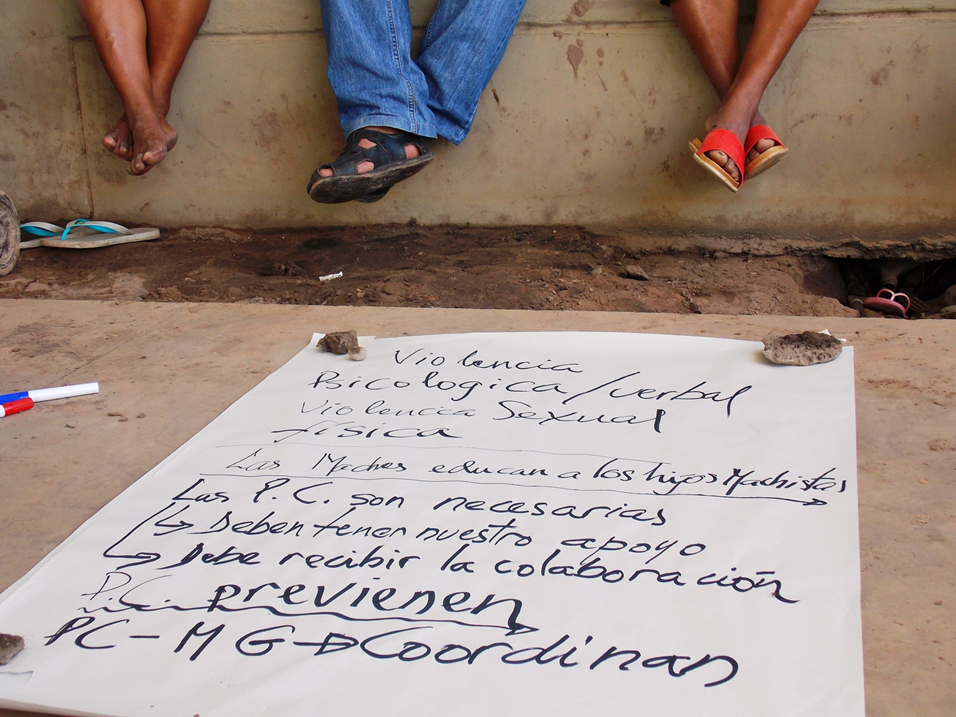 Violencia
Psicologica/verbal
Violencia Sexual
física
Las Madres educan a los hijos Machistas
Las P.C. son necesarias
Deben tener nuestro apoyo
Debe recibir la colaboración
P.C. previenen
PC-MG→Coordinan